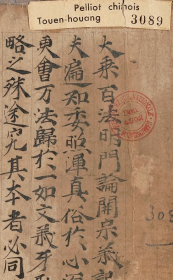 Pelliot chinois
Touen-houang 3089
大乘百法明門論開宗義記
夫遍知委照渾真俗於心
更會万法歸於一如文義
略之殊途究其本者必同
308